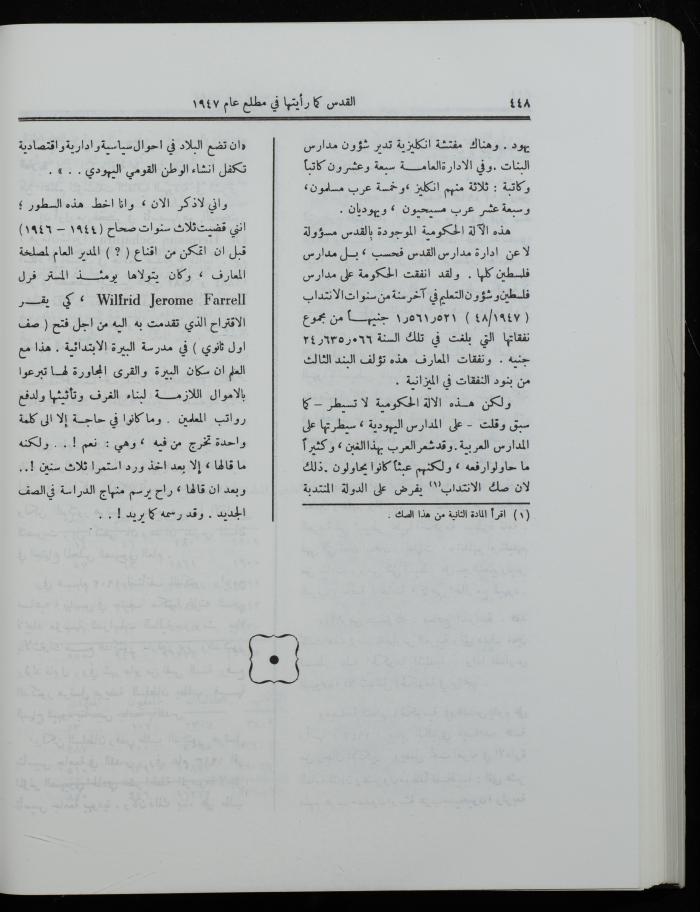 ٤٤٨
القدس كما رأيتها في مطلع عام ١٩٤٧
يهود . وهناك مفتشة انكليزية تدير شؤون مدارس
البنات . وفي الادارة العامة سبعة وعشرون كاتباً
وكاتبة : ثلاثة منهم انكليز ، وخمسة عرب مسلمون ،
وسبعة عشر عرب مسيحيون ، ويهوديان .
هذه الآلة الحكومية الموجودة بالقدس مسؤولة
لا عن ادارة مدارس القدس فحسب ، بل مدارس
فلسطين كلها . ولقد انفقت الحكومة على مدارس
فلسطين وشؤون التعليم في آخر سنة من سنوات الانتداب
( ٤٨/١٩٤٧ ) ١٫٥٦١٫٥٢١ جنيهاً من مجموع
نفقاتها التي بلغت في تلك السنة ٢٤٫٦٣٥٫٠٦٦
جنيه . ونفقات المعارف هذه تؤلف البند الثالث
من بنود النفقات في الميزانية .
ولكن هذه الالة الحكومية لا تسيطر – كما
سبق وقلت – على المدارس اليهودية ، سيطرتها على
المدارس العربية . وقد شعر العرب بهذا الغبن ، وكثيراً
ما حاولوا رفعه ، ولكنهم عبثاً كانوا يحاولون . ذلك
لان صك الانتداب (١) يفرض على الدولة المنتدبة
(١) اقرأ المادة الثانية من هذا الصك .
«ان تضع البلاد في احوال سياسية وادارية واقتصادية
تكفل انشاء الوطن القومي اليهودي . . » .
واني لاذكر الان ، وانا اخط هذه السطور ؛
انني قضيت ثلاث سنوات صحاح ( ١٩٤٤ – ١٩٤٦ )
قبل ان اتمكن من اقناع ( ? ) المدير العام لمصلحة
المعارف ، وكان يتولاها يومئذ المستر فرل
Wilfrid Jerome Farrell ، كي يقر
الاقتراح الذي تقدمت به اليه من اجل فتح ( صف
اول ثانوي ) في مدرسة البيرة الابتدائية . هذا مع
العلم ان سكان البيرة والقرى المجاورة لها تبرعوا
بالاموال اللازمة لبناء الغرف وتأثيثها ولدفع
رواتب المعلمين . وما كانوا في حاجة إلا الى كلمة
واحدة تخرج من فيه ، وهي : نعم ! . . ولكنه
ما قالها ، إلا بعد اخذ ورد استمرا ثلاث سنين ! . .
وبعد ان قالها ، راح يرسم منهاج الدراسة في الصف
الجديد . وقد رسمه كما يريد ! . .